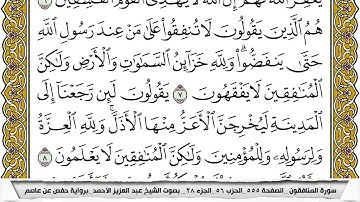 يَغْفِرَ ٱللَّهُ لَهُمْ إِنَّ ٱللَّهَ لَا يَهْدِى ٱلْقَوْمَ ٱلْفَٰسِقِينَ ٦
هُمُ ٱلَّذِينَ يَقُولُونَ لَا تُنفِقُوا۟ عَلَىٰ مَنْ عِندَ رَسُولِ ٱللَّهِ
حَتَّىٰ يَنفَضُّوا۟ ۗ وَلِلَّهِ خَزَآئِنُ ٱلسَّمَٰوَٰتِ وَٱلْأَرْضِ وَلَٰكِنَّ
ٱلْمُنَٰفِقِينَ لَا يَفْقَهُونَ ٧ يَقُولُونَ لَئِن رَّجَعْنَآ إِلَى
ٱلْمَدِينَةِ لَيُخْرِجَنَّ ٱلْأَعَزُّ مِنْهَا ٱلْأَذَلَّ ۚ وَلِلَّهِ ٱلْعِزَّةُ
وَلِرَسُولِهِۦ وَلِلْمُؤْمِنِينَ وَلَٰكِنَّ ٱلْمُنَٰفِقِينَ لَا يَعْلَمُونَ ٨
سورة المنافقون _الصفحة ٥٥٥_الحزب ٥٦_الجزء ٢٨_ بصوت الشيخ عبد العزيز الأحمد_برواية حفص عن عاصم